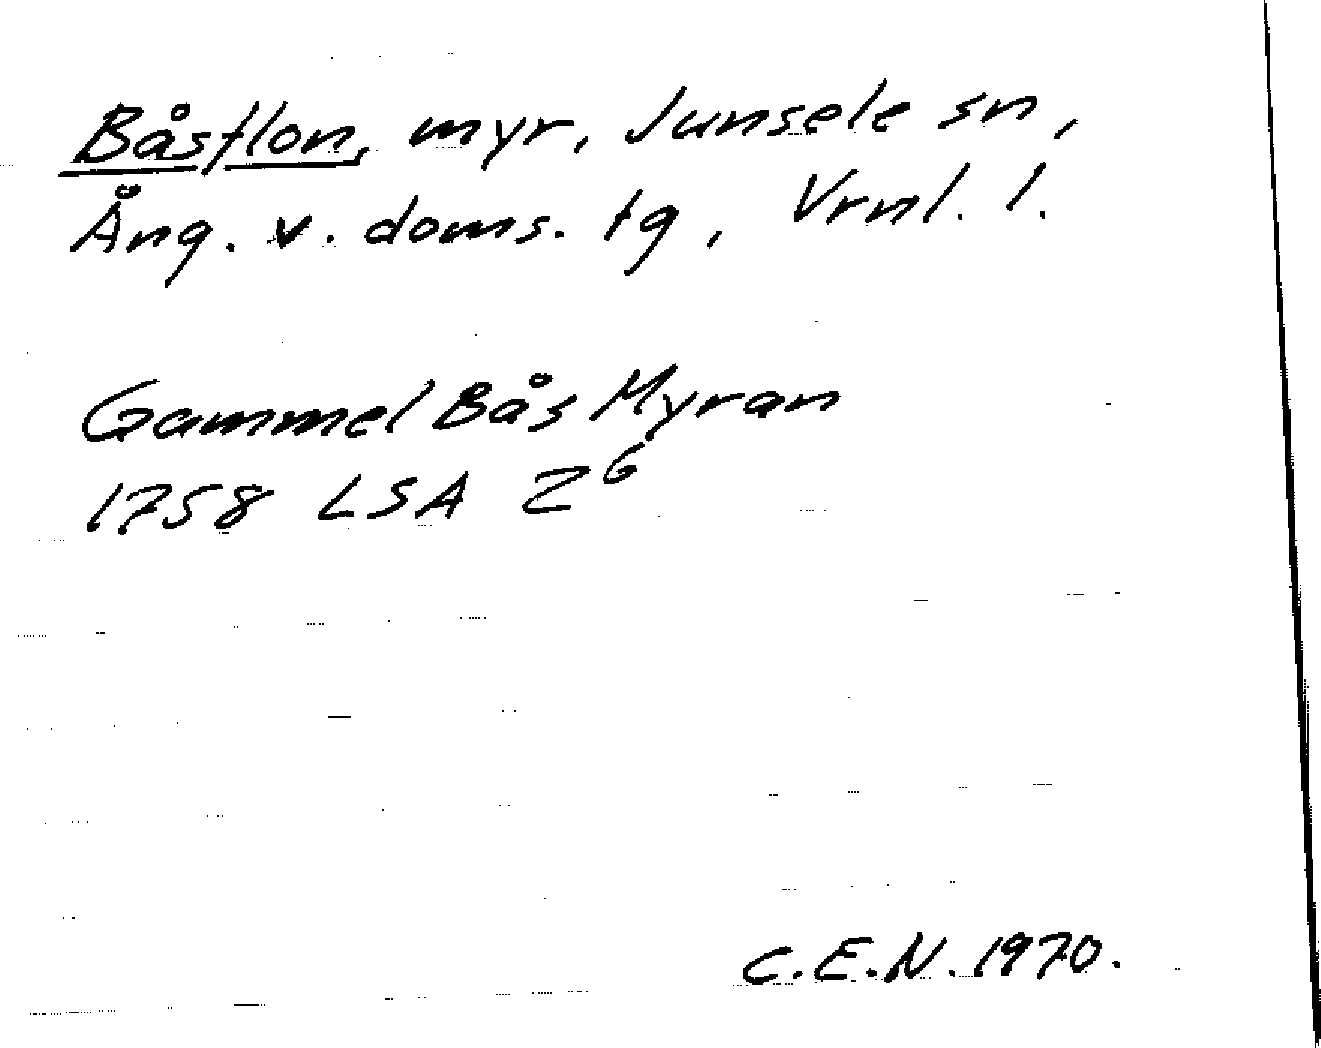 Båsflon, myr, Junsele sn,
Ång. v. doms. tg, Vrnl. l.
Gammel Bås Myran
1758 LSA Z⁶
C.E.N. 1970.